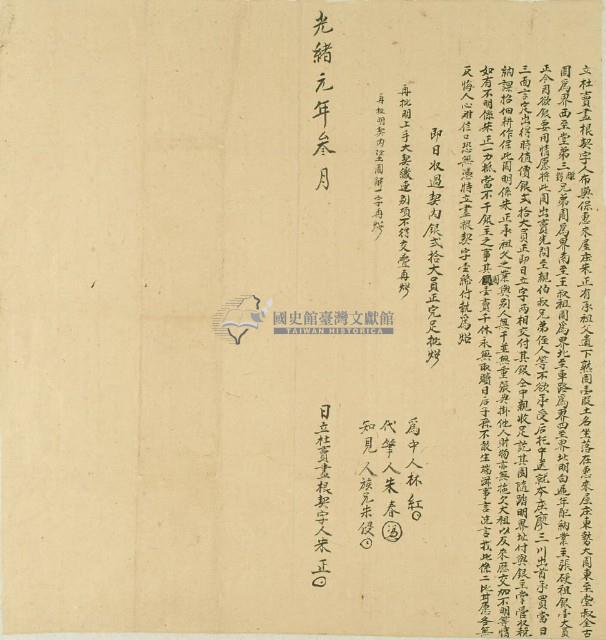 立杜賣盡根契字人布與保惠來屋庄朱正有承祖父遺下熟園壹段土名坐落在惠來屋庄東勢大圳東至堂叔全古
園為界西至堂弟三兄弟園為界南至王叔祖園為界北至車路為界四至界址明白遞年配納業主張硬租銀壹大員
正今因欲銀要用情愿將此園出賣先問至親伯叔兄弟侄人等不欲承受后托中送就本庄廖三川出首承買當日
三面言定出得時值價銀弍拾大員正即日立字兩相交付其銀仝中親收足訖其園隨踏明界址付與銀主掌管收租
納課招佃耕作保此園明係朱正承祖父之業與別人無干並無重張典掛他人財物亦無拖欠大租以及來歷交加不明等情
如有不明係朱正一力抵當不干銀主之事其園壹賣千休永無取贖日后子孫不敢生端滋事言洗言找此係二比甘愿各無
反悔人心難信口恐無憑特立盡根契字壹紙付執為炤
即日收過契內銀弍拾大員正完足批炤
再批明上手大契繳連別項不得交疊再炤
再批明契內註園一字再炤
為中人林紅
代筆人朱春
知見人族兄朱侵
光緒元年叁月
日立杜賣盡根契字人朱正
國史館臺灣文獻館
TAIWAN HISTORICA